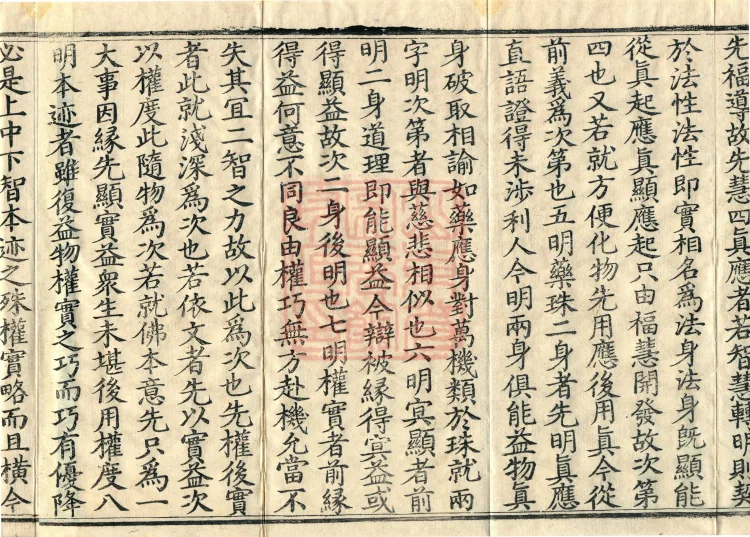 先福導故先慧四眞應者若智慧轉明則契
於法性法性即實相名爲法身法身旣顯能
從眞起應眞顯應起只由福慧開發故次第
四也又若就方便化物先用應後用眞今從
前義爲次第也五明藥珠二身者先明眞應
直語證得未涉利人今明兩身俱能益物眞
身破取相諭如藥應身對萬機類於珠就兩
字明次第者與慈悲相似也六明冥顯者前
明二身道理即能顯益今辯被緣得冥益或
得顯益故次二身後明也七明權實者前緣
得益何意不同良由權巧無方赴機允當不
失其冝二智之力故以此爲次也先權後實
者此就淺深爲次也若依文者先以實益次
以權度此隨物爲次若就佛本意先只爲一
大事因緣先顯實益衆生未堪後用權度八
明本迹者雖復益物權實之巧而巧有優降
必是上中下智本迹之殊權實略而且橫今